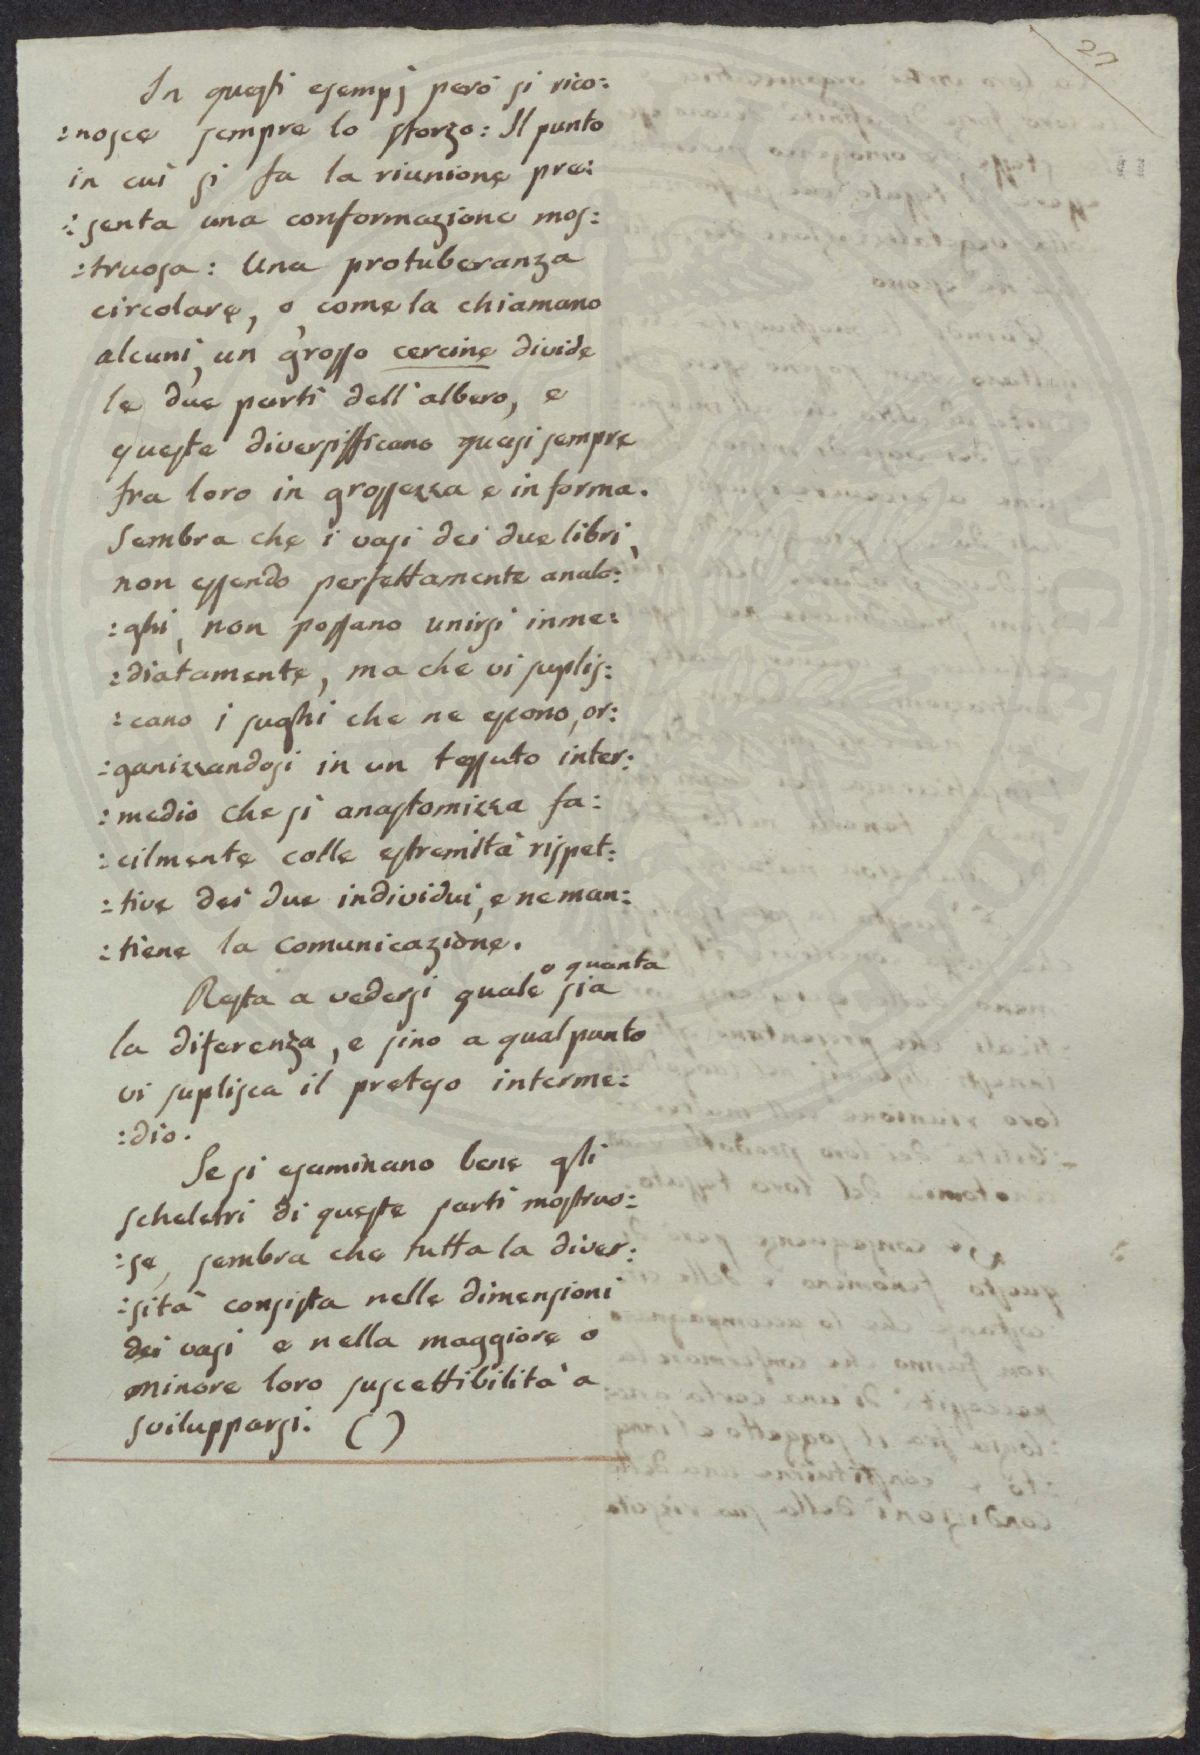 27
In questi esempj però si rico:
:nosce sempre lo sforzo: Il punto
in cui si fa la riunione pre:
:senta una conformazione mos:
:truosa: Una protuberanza
circolare, o, come la chiamano
alcuni, un grosso cercine divide
le due parti dell'albero, e
queste diversifficano quasi sempre
fra loro in grossezza e in forma.
Sembra che i vasi dei due libri,
non essendo perfettamente analo:
:ghi, non possano unirsi inme:
:diatamente, ma che vi suplis:
:cano i sughi che ne escono, or:
:ganizzandosi in un tessuto inter:
:medio che si anastomizza fa:
:cilmente colle estremità rispet:
:tive dei due individui, e ne man:
:tiene la comunicazione.
Resta a vedersi quale o quanta sia
la diferenza, e sino a qual punto
vi suplisca il preteso interme:
:dio.
Se si esaminano bene gli
scheletri di queste parti mostruo:
:se, sembra che tutta la diver:
:sità consista nelle dimensioni
dei vasi e nella maggiore o
minore loro suscettibilità a
svilupparsi. ()